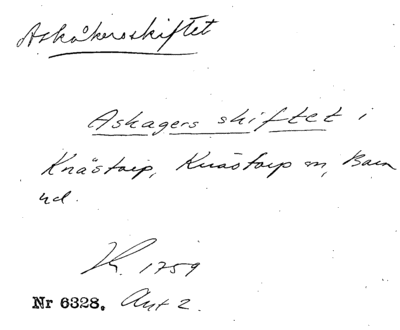 Askåkersskiftet
Askagers skiftet i
Knästorp, Knästorp sn, Bara
hd.
1759
Nr 6328. Akt 2.